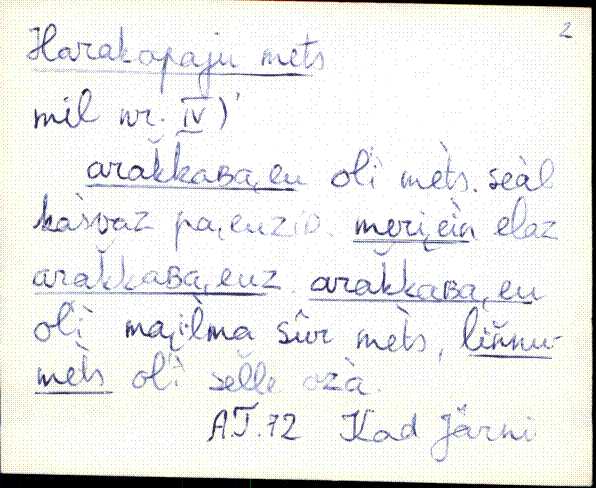 2
Harakapaju mets
mil nr. IV)
aràkkaʙa̭eu olì mèts. seàl
kàsvaz pa̭euziᴅ. meri̭eìn elaz
aràkkaʙa̭euz. aràkkaʙa̭eu
olì ma̭ìlma sûr mèts, lìnnu-
mèts olì selle ozà.
AT. 72 Kad Järni